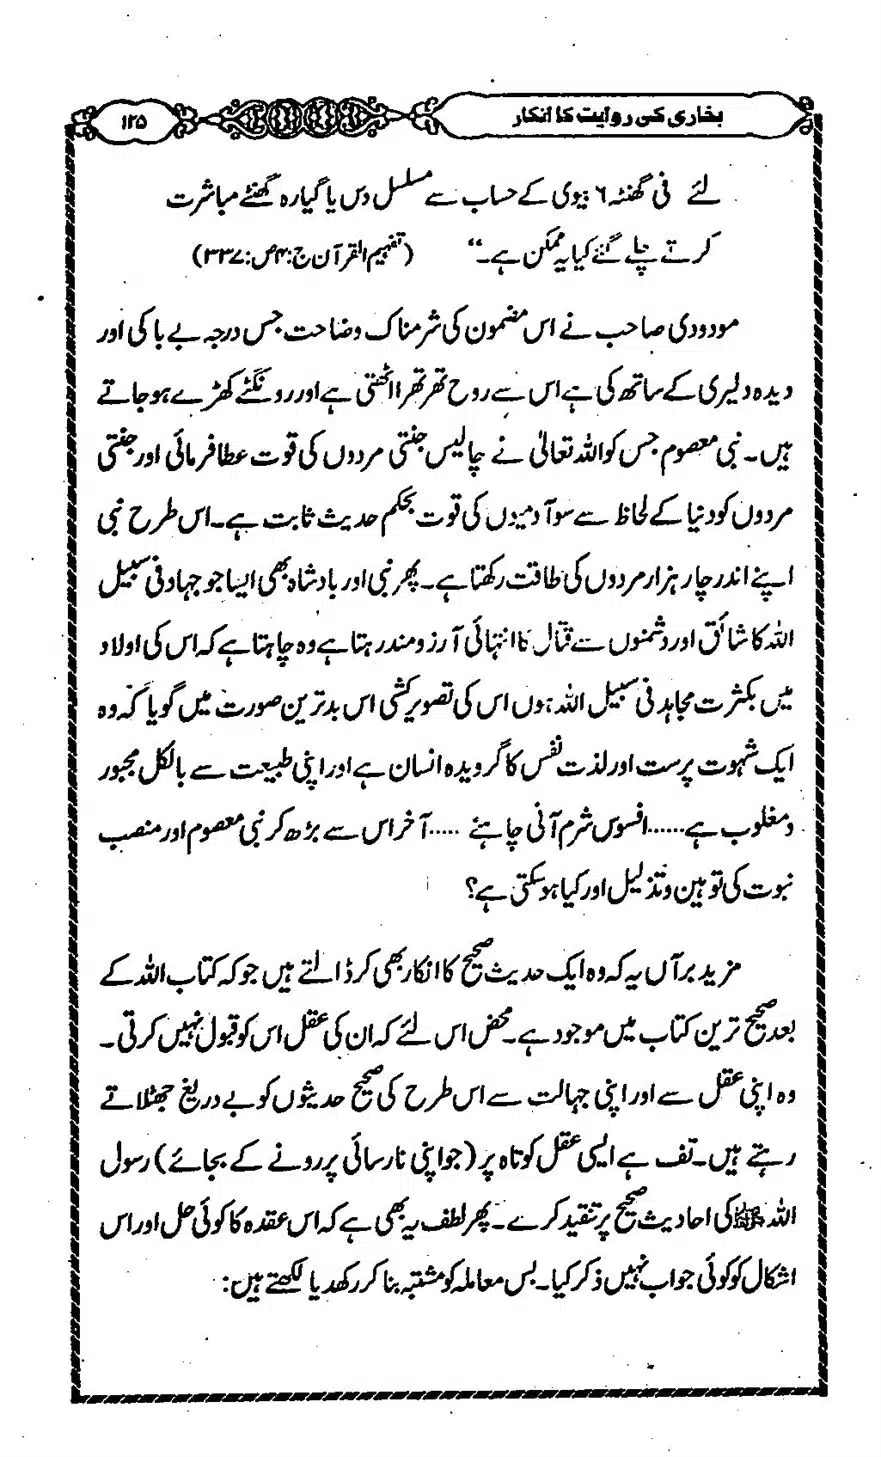 بخاری کی روایت کا انکار
۱۲۵
لئے فی گھنٹہ ۶ بیوی کے حساب سے مسلسل دس یا گیارہ گھنٹے مباشرت
کرتے چلے گئے کیا یہ ممکن ہے۔“ (تفہیم القرآن ج:۴ص:۳۳۷)
مودودی صاحب نے اس مضمون کی شرمناک وضاحت جس درجہ بے باکی اور
دیدہ دلیری کے ساتھ کی ہے اس سے روح تھرتھرا اٹھتی ہے اور رونگٹے کھڑے ہو جاتے
ہیں۔ نبی معصوم جس کو اللہ تعالیٰ نے چالیس جنتی مردوں کی قوت عطا فرمائی اور جنتی
مردوں کو دنیا کے لحاظ سے سو آدمیوں کی قوت بحکم حدیث ثابت ہے۔ اس طرح نبی
اپنے اندر چار ہزار مردوں کی طاقت رکھتا ہے۔ پھر نبی اور بادشاہ بھی ایسا جو جہاد فی سبیل
اللہ کا شائق اور دشمنوں سے قتال کا انتہائی آرزومند رہتا ہے وہ چاہتا ہے کہ اس کی اولاد
میں بکثرت مجاہد فی سبیل اللہ ہوں اس کی تصویر کشی اس بدترین صورت میں گویا کہ وہ
ایک شہوت پرست اور لذت نفس کا گرویدہ انسان ہے اور اپنی طبیعت سے بالکل مجبور
و مغلوب ہے......افسوس شرم آنی چاہئے .....آخر اس سے بڑھ کر نبی معصوم اور منصب
نبوت کی توہین و تذلیل اور کیا ہوسکتی ہے؟
مزید برآں یہ کہ وہ ایک حدیث صحیح کا انکار بھی کر ڈالتے ہیں جو کہ کتاب اللہ کے
بعد صحیح ترین کتاب میں موجود ہے۔ محض اس لئے کہ ان کی عقل اس کو قبول نہیں کرتی۔
وہ اپنی عقل سے اور اپنی جہالت سے اس طرح کی صحیح حدیثوں کو بے دریغ جھٹلاتے
رہتے ہیں۔ تف ہے ایسی عقل کوتاہ پر (جو اپنی نارسائی پر رونے کے بجائے) رسول
اللہ ﷺ کی احادیث صحیح پر تنقید کرے۔ پھر لطف یہ بھی ہے کہ اس عقدہ کا کوئی حل اور اس
اشکال کو کوئی جواب نہیں ذکر کیا۔ بس معاملہ کو مشتبہ بنا کر رکھ دیا لکھتے ہیں: